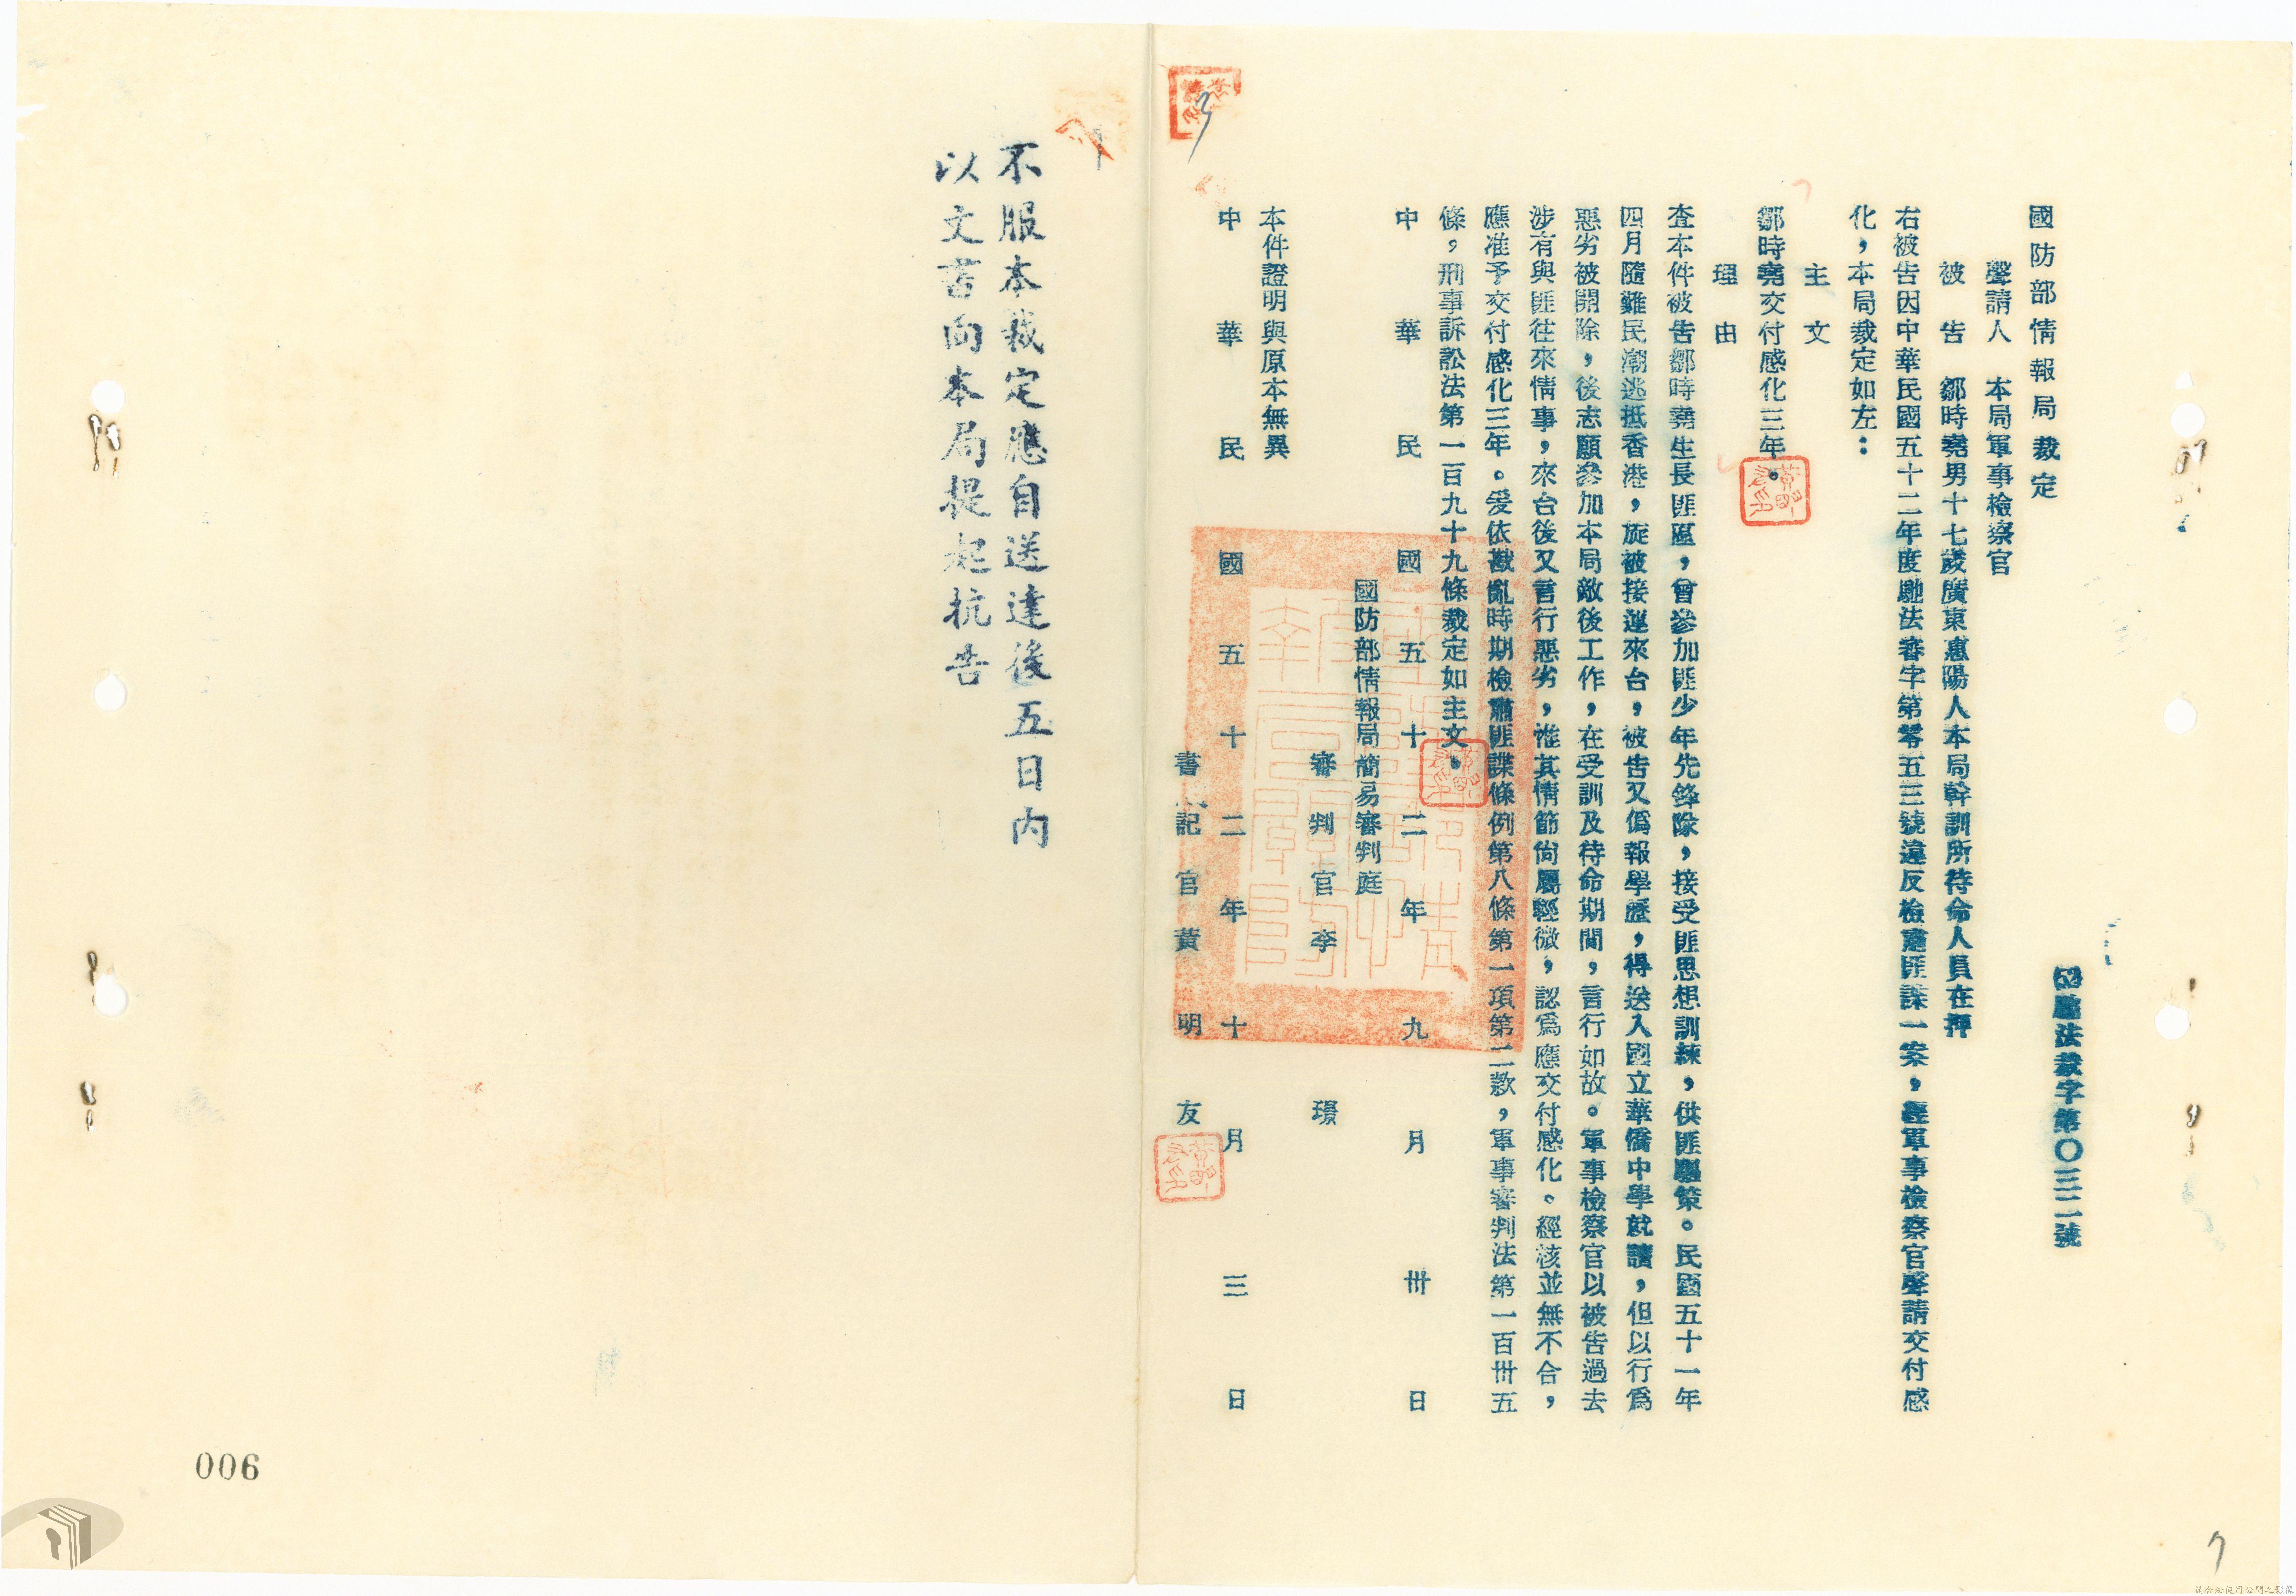 國防部情報局裁定
52馳法裁字第〇三二號
聲請人　本局軍事檢察官
被　告　鄒時堯男十七歲廣東惠陽人本局幹訓所待命人員在押
右被告因中華民國五十二年度馳法審字第零五三號違反檢肅匪諜一案，經軍事檢察官聲請交付感
化，本局裁定如左：
主　文
鄒時堯交付感化三年。
理　由
查本件被告鄒時堯生長匪區，曾參加匪少年先鋒隊，接受匪思想訓練，供匪驅策。民國五十一年
四月隨難民潮逃抵香港，旋被接運來台，被告又偽報學歷，得送入國立華僑中學就讀，但以行為
惡劣被開除，後志願參加本局敵後工作，在受訓及待命期間，言行如故。軍事檢察官以被告過去
涉有與匪往來情事，來台後又言行惡劣，惟其情節尚屬輕微，認為應交付感化。經核並無不合，
應准予交付感化三年。爰依戡亂時期檢肅匪諜條例第八條第一項第二款，軍事審判法第一百卅五
條，刑事訴訟法第一百九十九條裁定如主文。
中華民國五十二年九月卅日
國防部情報局簡易審判庭
審判官李璟
本件證明與原本無異
中華民國五十二年十月三日
書記官黃明友
不服本裁定應自送達後五日內
以文書向本局提起抗告
006
7
請合法使用公開之影像